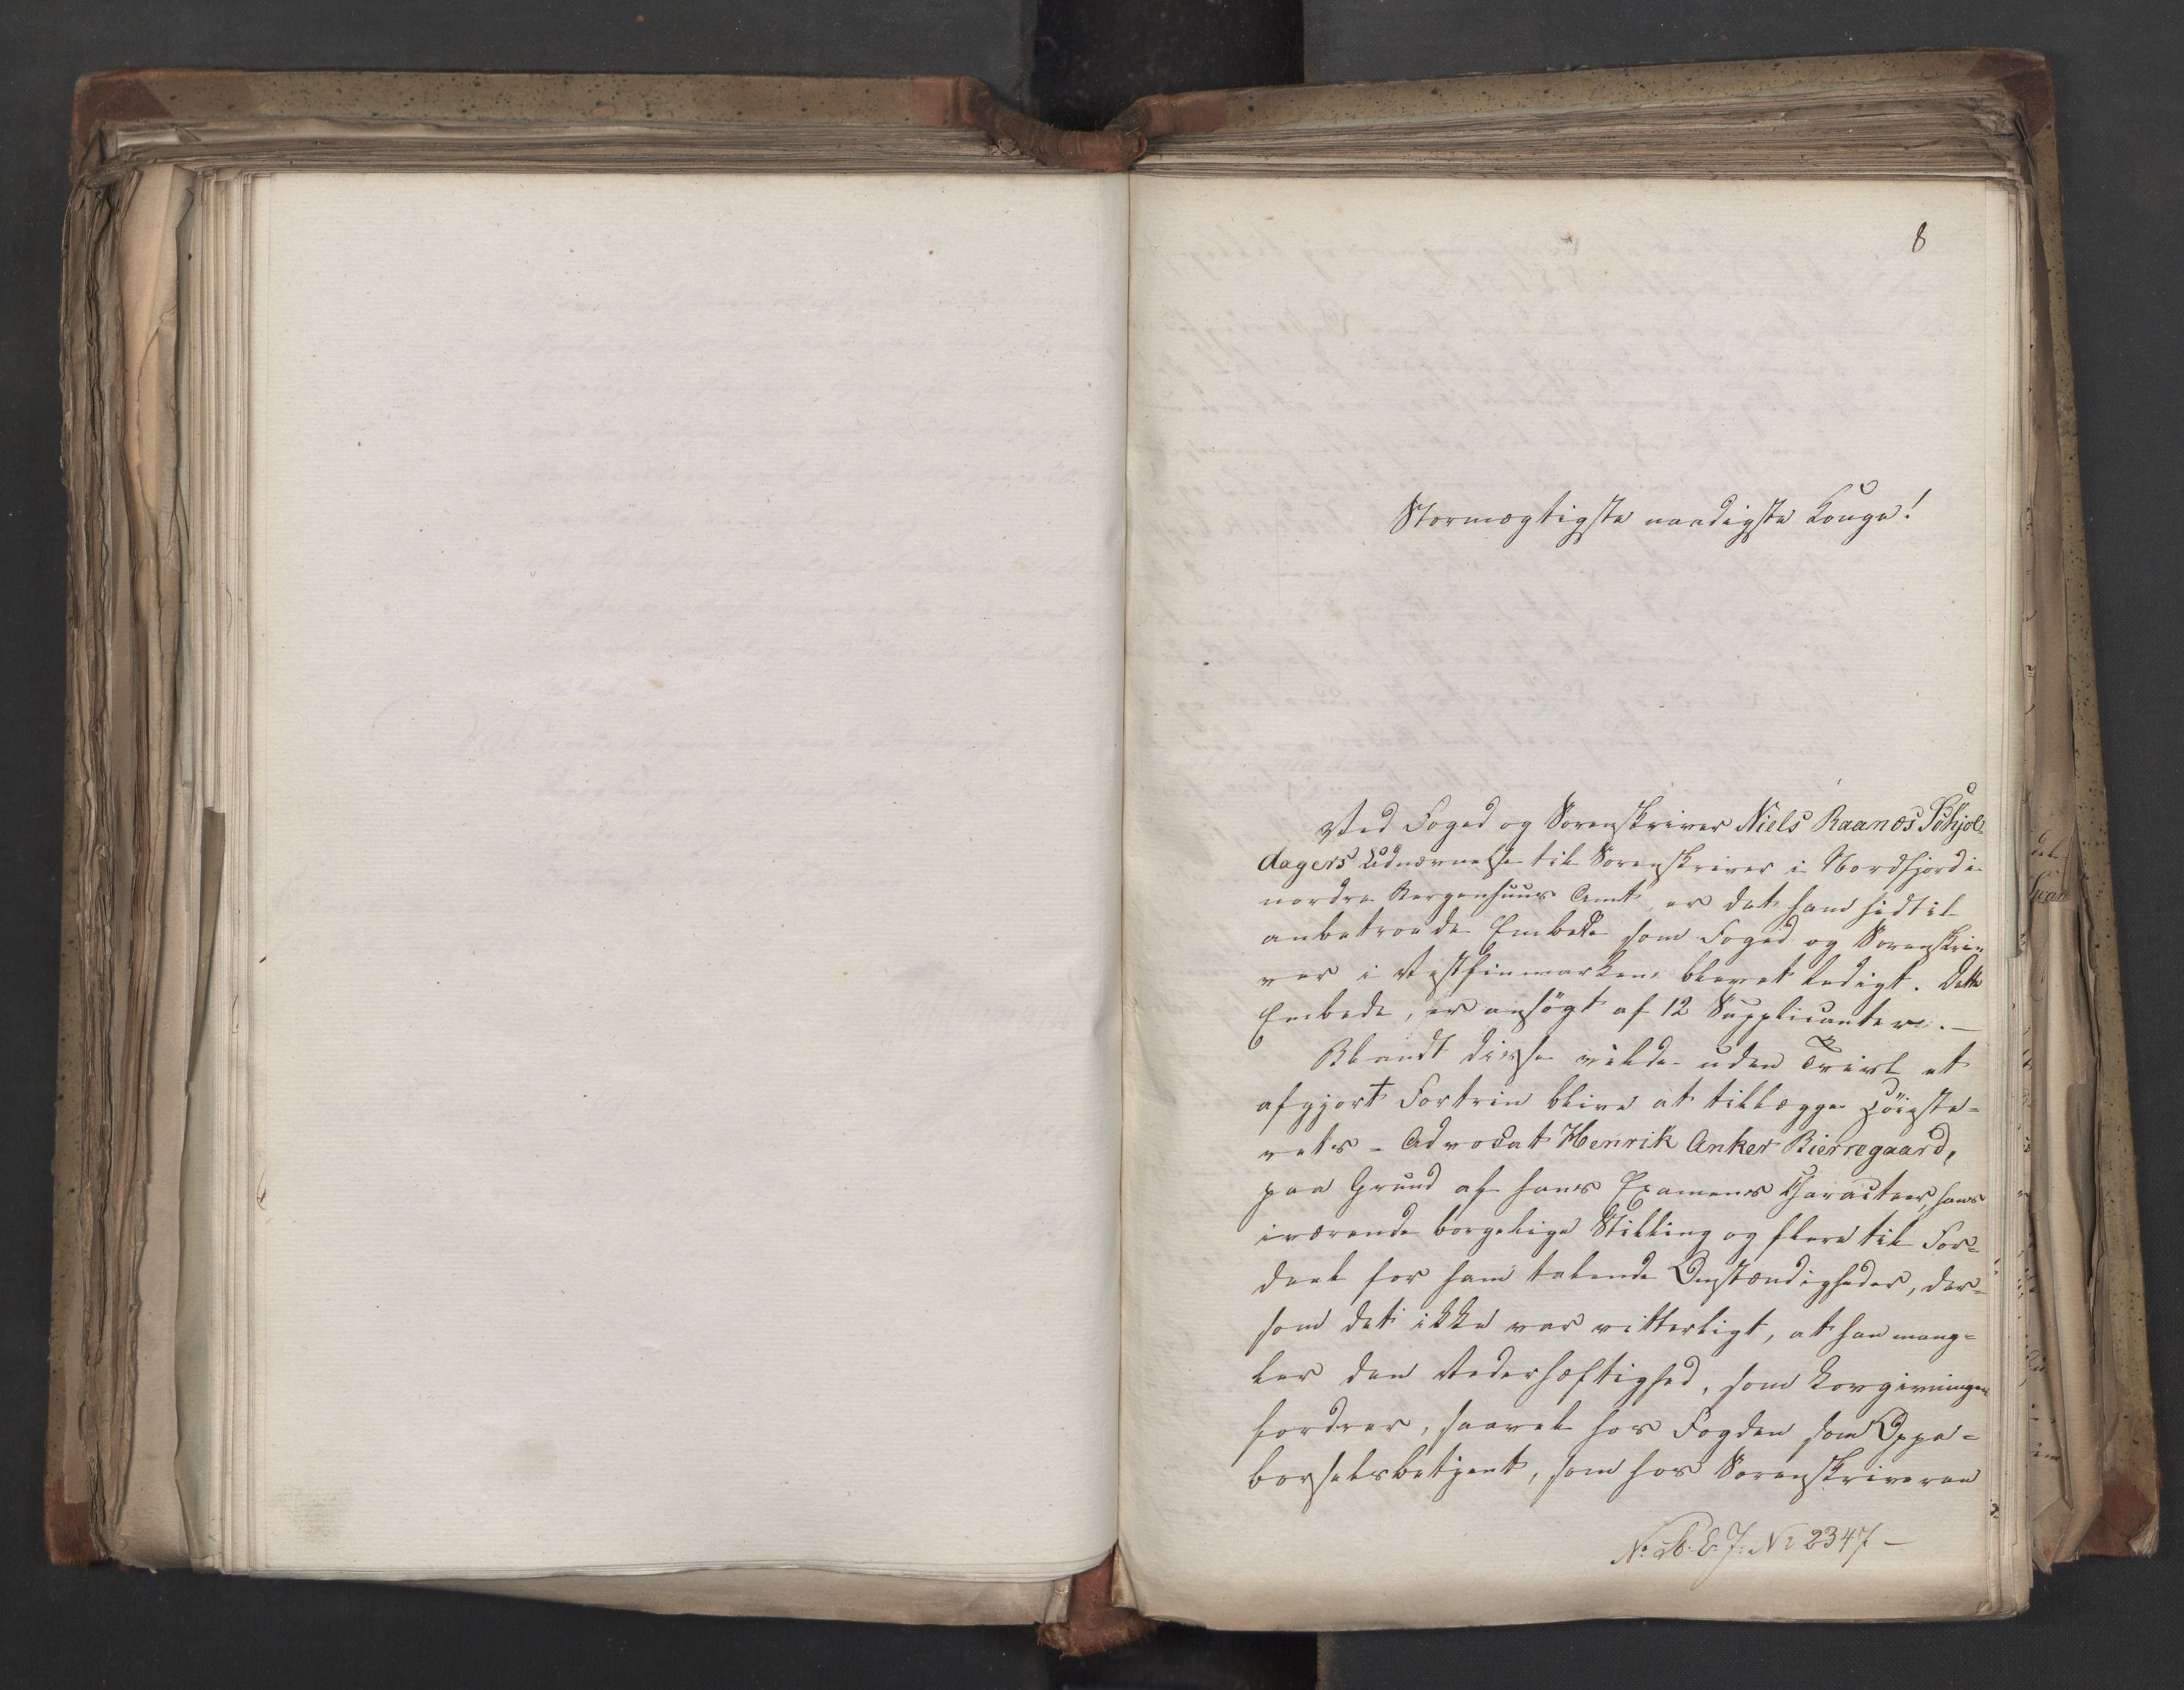 8
Stormægtigste naadigste Konge!
Ved Foged og Sorenskriver Niels Raanæs Schjol-
dagers Udnævnelse til Sorenskriver i Nordfjord i
nordre Bergenhuus Amt er det ham hidtil
anbetroede Embede som Foged og Sorenskri-
ver i Vestfinmarken blevet ledigt. Dette
Embede, er ansögt af 12 Supplicanter. —
Blandt disse vilde uden Tvivl et
afgjort Fortrin blive at tillægge Höieste-
rets-Advocat Henrik Anker Bierregaard,
paa Grund af hans Examens Characteer, hans
iværende borgelige Stilling og flere til For-
deel for ham talende Omstændigheder, der-
som det ikke var vitterligt, at han mang-
ler den Vederhæftighed, som Lovgivningen
fordrer, saavel hos Fogden som Oppe-
børselsbetjent, som hos Sorenskriveren
No 2347 —